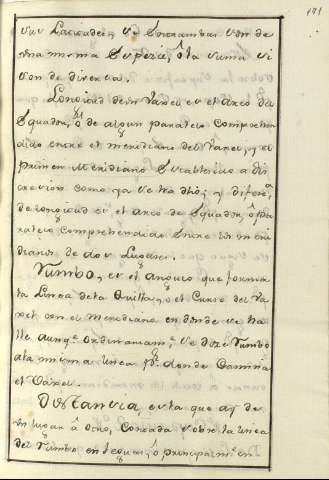 171
una misma Especie, ô la suma si
son de diversa.
Longitud de un Vaxel es el arco de
Equador, ô de algun paralelo comprehen
dido entre el meridiano del Vaxel, y el
primer Meridiano Establecido a dis
crecion como ya se ha dhô; y difera.
de longitud es el arco de Equador, ô pa
ralelo comprehendido Entre los meri
dianos de dos Lugares.
Rumbo, es el angulo que forma
la Linea de la Quilla, ô el Curso del Ba
xel con el Meridiano en donde se ha
lle aunqe. ordinariamte. se dize Rumbo
ala misma linea pr. donde Camina
el Vaxel.
Distancia, es la que ay de
un lugar â otro, Contada sobre la linea
del Rumbo en leguas, ô principalmte. en